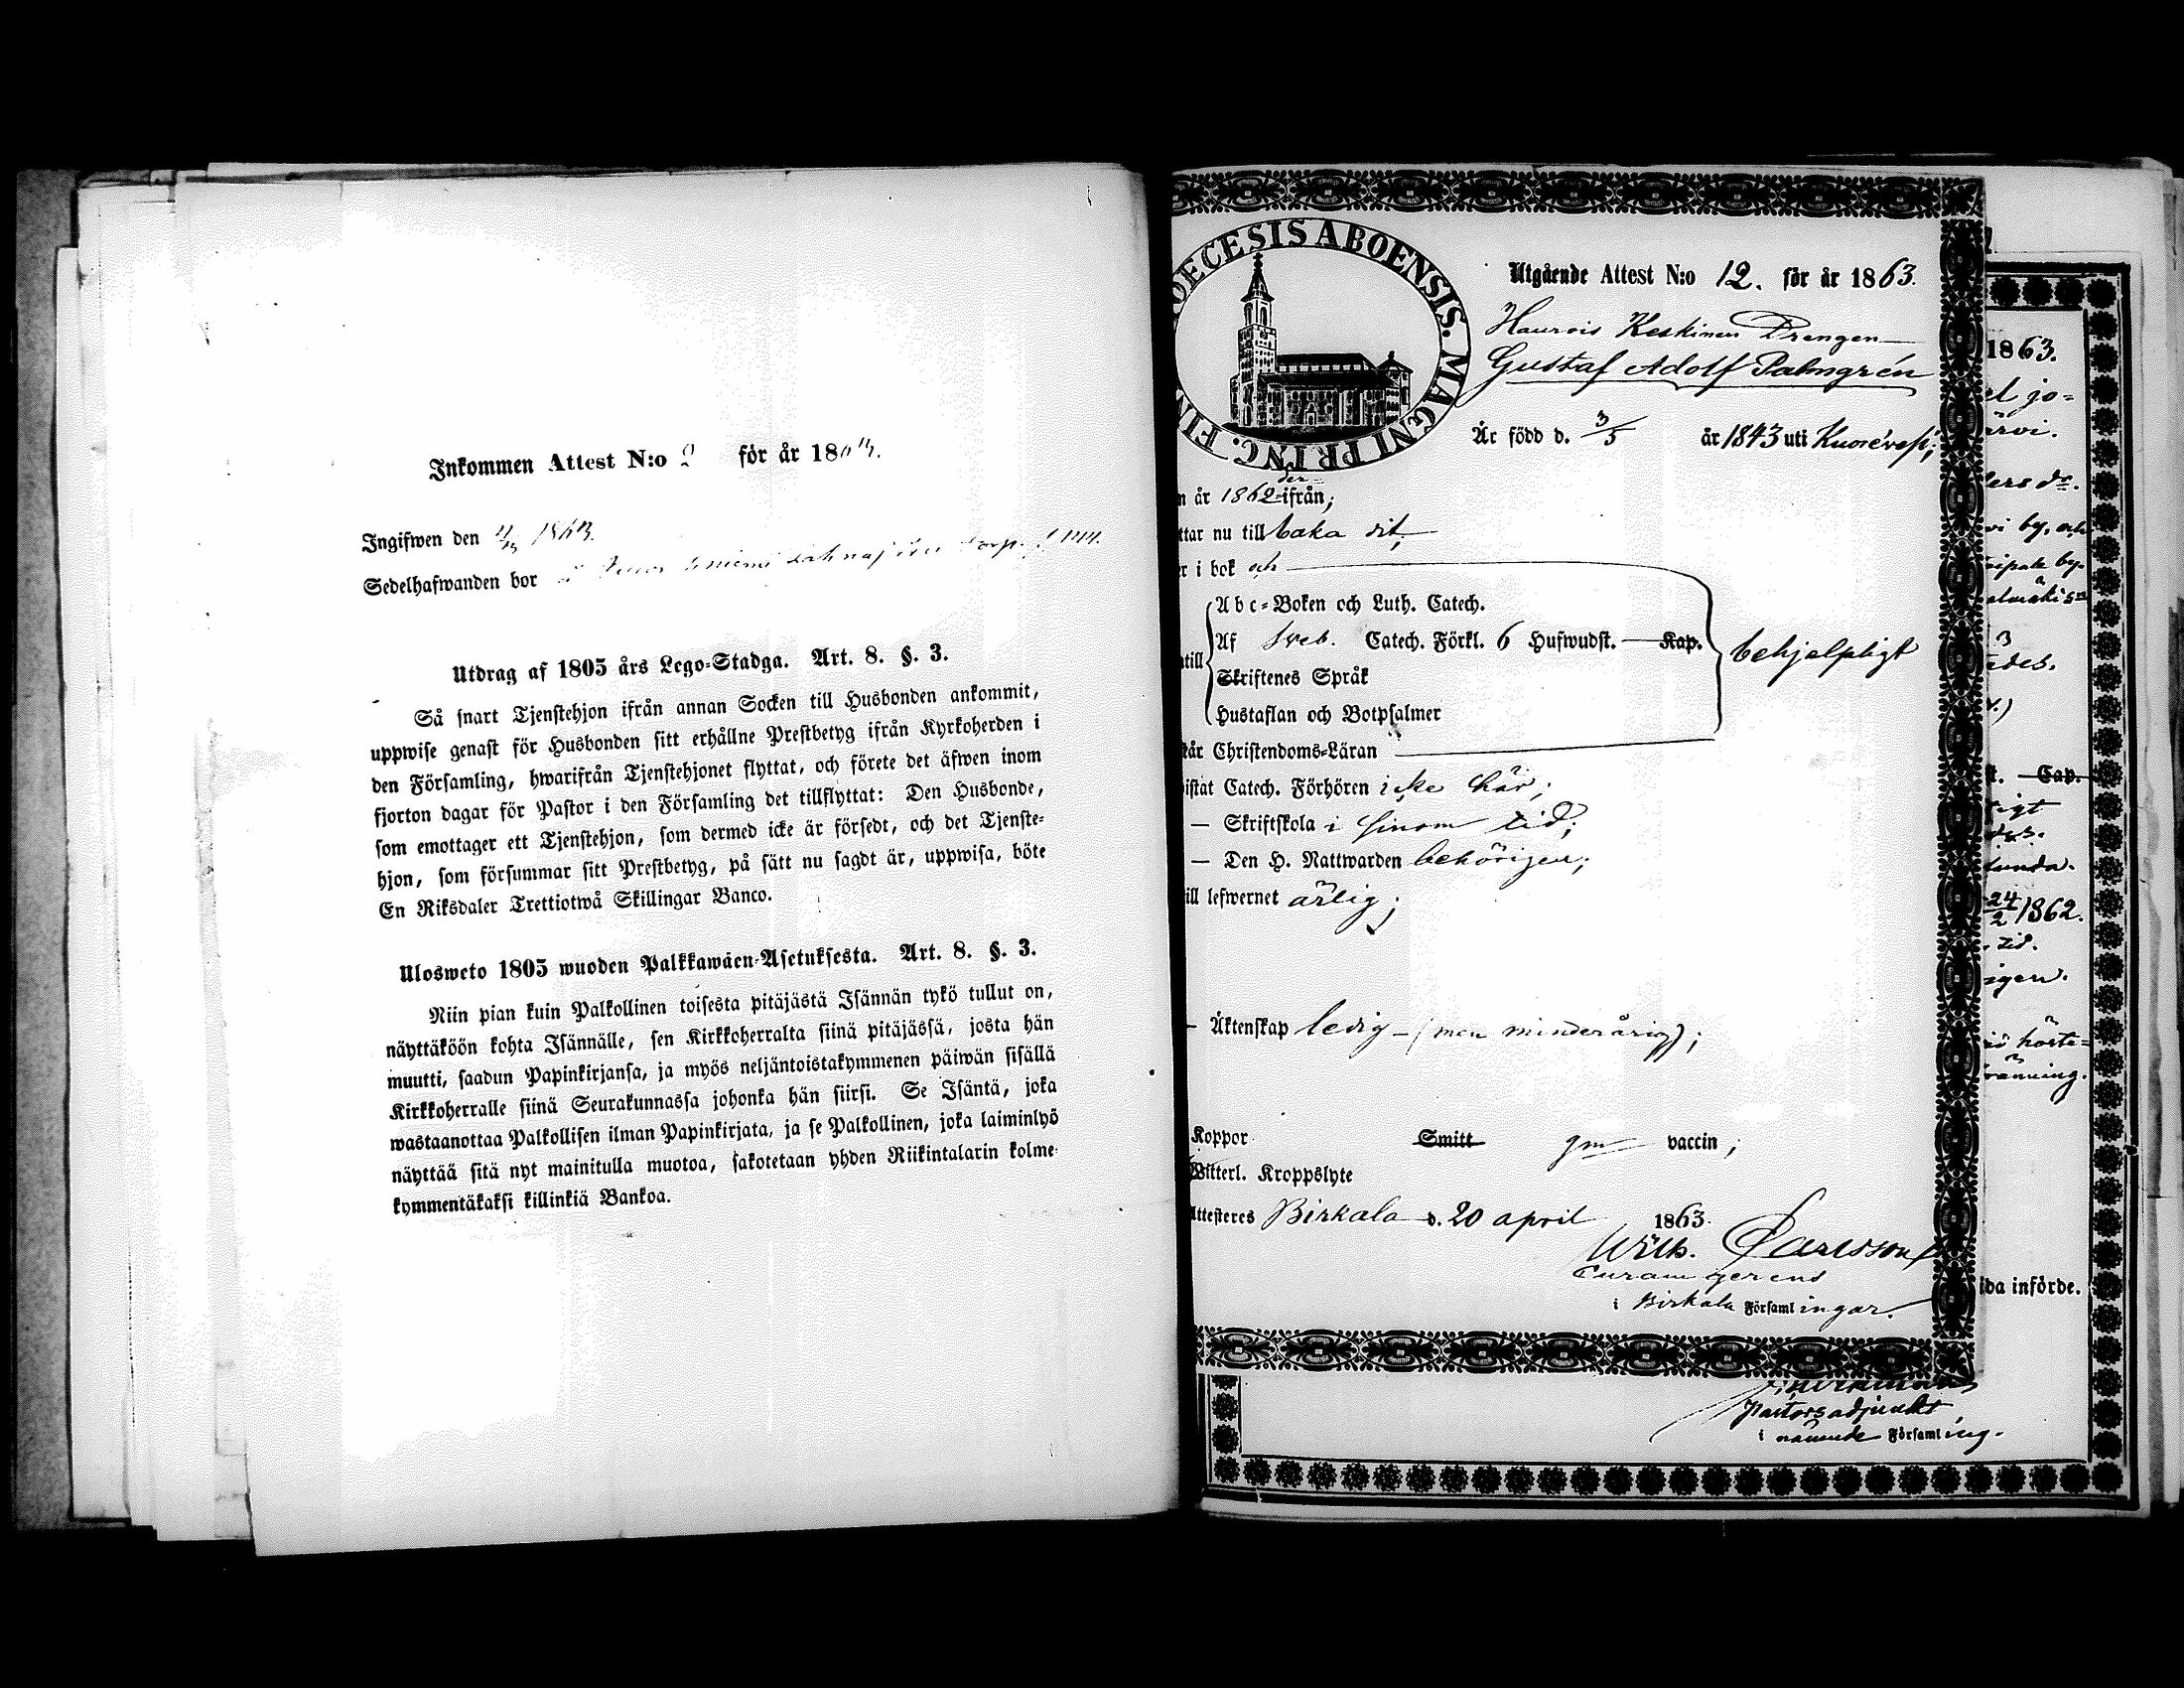 Inkommen Attest N:o för år 1863.
Ingifwen den 1863.
Sedelhafwanden bor
Utdrag af 1805 års Lego-Stadga. Art. 8. §. 3.
Så snart Tjenstehjon ifrån annan Socken till Husbonden ankommit,
uppwise genast för Husbonden sitt erhållne Prestbetyg ifrån Kyrkoherden i
den Församling, hwarifrån Tjenstehjonet flyttat, och förete det äfwen inom
fjorton dagar för Pastor i den Församling det tillflyttat: Den Husbonde,
som emottager ett Tjenstehjon, som dermed icke är försedt, och det Tjenste-
hjon, som försummar sitt Prestbetyg, på sätt nu sagdt är, uppwisa, böte
En Riksdaler Trettiotwå Skillingar Banco.
Ulosweto 1805 wuoden Palkkawäen-Asetuksesta. Art. 8. §. 3.
Niin pian kuin Palkollinen toisesta pitäjästä Isännän tykö tullut on,
näyttäköön kohta Isännälle, sen Kirkkoherralta siinä pitäjässä, josta hän
muutti, saadun Papinkirjansa, ja myös neljäntoistakymmenen päiwän sisällä
Kirkkoherralle siinä Seurakunnassa johonka hän siirsi. Se Isäntä, joka
wastaanottaa Palkollisen ilman Papinkirjata, ja se Palkollinen, joka laiminlyö
näyttää sitä nyt mainitulla muotoa, sakotetaan yhden Riikintalarin kolme-
kymmentäkaksi killinkiä Bankoa.
OECESIS ABOENSIS. MAGNI PRINC. FIN
Utgående Attest N:o 12. för år 1863.
Keskinen Drengen
Gustaf Adolf Palmgrén
Är född d. 3/5 år 1843 uti Kuorevesi;
n år 1862 der-ifrån;
ttar nu till baka dit,
r i bok och
Abc-Boken och Luth. Catech.
Af Sveb. Catech. Förkl. 6 Hufwudst. Kap.
behjelpligt
till
Skriftenes Språk
Hustaflan och Botpsalmer
tår Christendoms-Läran
istat Catech. Förhören icke här;
— Skriftskola i sinom tid;
— Den H. Nattwarden behörigen;
ill lefwernet ärlig;
— Äktenskap ledig – (men minderårig);
Koppor Smitt gm vaccin;
Witterl. Kroppslyte
Attesteres Birkala d. 20 april 1863.
Wilh. Carlsson
Curam gerens
i Birkala Församlingar.
1863.
jo-
ärvi.
by, och
by-
3
st. Cap.
24/2 1862.
tid.
igen.
da införde.
Pastorsadjunkt
i nämnde Församling.